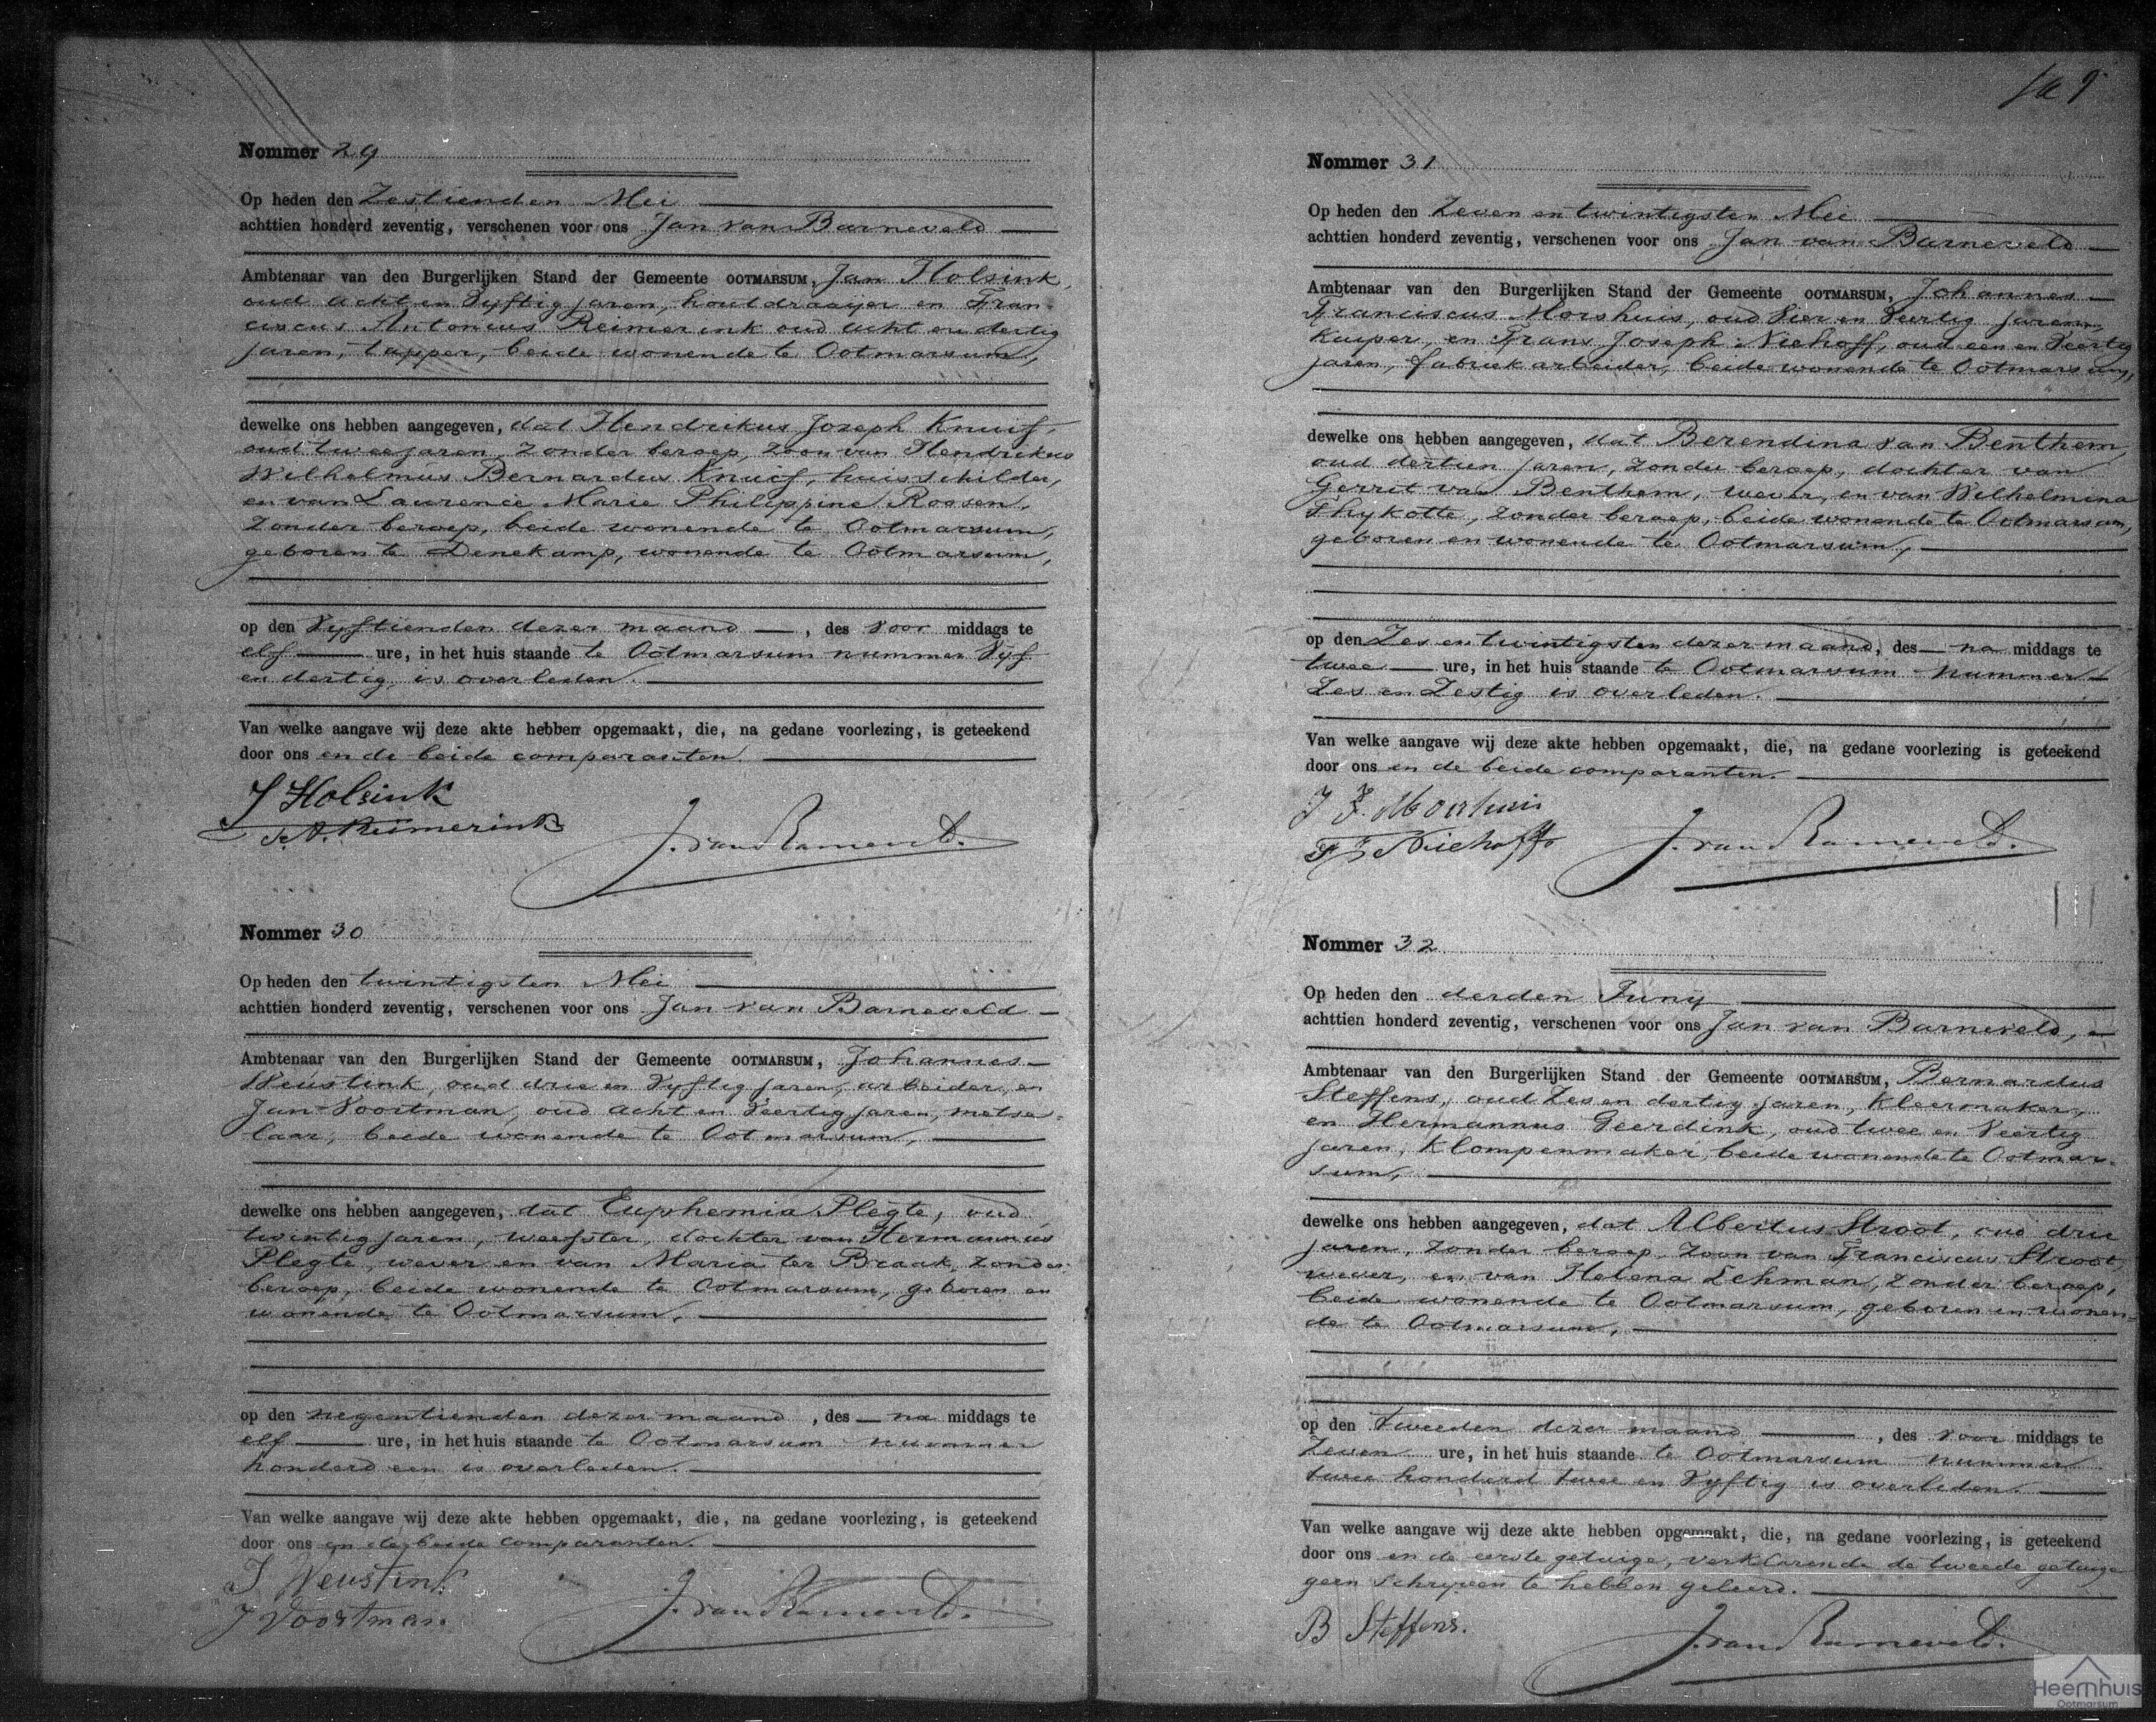 Nommer 29
Op heden den Zestienden Mei
achttien honderd zeventig, verschenen voor ons Jan van Barneveld
Ambtenaar van den Burgerlijken Stand der Gemeente OOTMARSUM, Jan Holsink,
oud acht en Vyftig jaren, houtdraaijer en Fran
ciscus Antonius Reimerink oud acht en dertig
jaren, tapper, beide wonende te Ootmarsum,
dewelke ons hebben aangegeven, dat Hendrikus Joseph Knuif,
oud twee jaren, zonder beroep, zoon van Hendrikus
Wilhelmus Bernardus Knuif, huisschilder,
en van Laurence Marie Philippine Roosen,
zonder beroep, beide wonende te Ootmarsum,
geboren te Denekamp, wonende te Ootmarsum,
op den Vyftienden dezer maand, des voor middags te
elf ure, in het huis staande te Ootmarsum nummer Vyf
en dertig, is overleden.
Van welke aangave wij deze akte hebben opgemaakt, die, na gedane voorlezing, is geteekend
door ons en de beide comparanten.
J Holsink
F. A. Reimerink
J. van Barneveld.
Nommer 30
Op heden den twintigsten Mei
achttien honderd zeventig, verschenen voor ons Jan van Barneveld
Ambtenaar van den Burgerlijken Stand der Gemeente OOTMARSUM, Johannes
Weustink, oud drie en Vyftig jaren, arbeider, en
Jan Voortman, oud acht en Veertig jaren, metse-
laar, beide wonende te Ootmarsum,
dewelke ons hebben aangegeven, dat Euphemia Plegte, oud
twintig jaren, weefster, dochter van Hermannus
Plegte, wever en van Maria ter Braak, zonder
beroep, beide wonende te Ootmarsum, geboren en
wonende te Ootmarsum,
op den negentienden dezer maand, des na middags te
elf ure, in het huis staande te Ootmarsum nummer
honderd een is overleden.
Van welke aangave wij deze akte hebben opgemaakt, die, na gedane voorlezing, is geteekend
door ons en de beide comparanten.
J Weustink
J Voortman.
J. van Barneveld.
Nommer 31
Op heden den Zeven en twintigsten Mei
achttien honderd zeventig, verschenen voor ons Jan van Barneveld
Ambtenaar van den Burgerlijken Stand der Gemeente OOTMARSUM, Johannes
Franciscus Morshuis, oud Vier en Veertig jaren,
Kuiper, en Frans Joseph Niehoff, oud een en Veertig
jaren, fabriekarbeider, beide wonende te Ootmarsum,
dewelke ons hebben aangegeven, dat Berendina van Benthem,
oud dertien jaren, zonder beroep, dochter van
Gerrit van Benthem, wever, en van Wilhelmina
, zonder beroep, beide wonende te Ootmarsum,
geboren en wonende te Ootmarsum,
op den Zes en twintigsten dezer maand, des na middags te
twee ure, in het huis staande te Ootmarsum nummer
Zes en Zestig is overleden.
Van welke aangave wij deze akte hebben opgemaakt, die, na gedane voorlezing is geteekend
door ons en de beide comparanten.
J F. Morshuis
F J Niehoff
J. van Barneveld.
Nommer 32
Op heden den derden Juny
achttien honderd zeventig, verschenen voor ons Jan van Barneveld,
Ambtenaar van den Burgerlijken Stand der Gemeente OOTMARSUM, Bernardus
Steffens, oud Zes en dertig jaren, Kleermaker,
en Hermannus Geerdink, oud twee en Veertig
jaren, Klompenmaker, beide wonende te Ootmar-
sum,
dewelke ons hebben aangegeven, dat Albertus Stroot, oud drie
jaren, zonder beroep, zoon van Franciscus Stroot,
wever, en van Helena Lehman, zonder beroep,
beide wonende te Ootmarsum, geboren en wonen=
de te Ootmarsum,
op den tweeden dezer maand, des voor middags te
Zeven ure, in het huis staande te Ootmarsum nummer
twee honderd twee en Vyftig is overleden.
Van welke aangave wij deze akte hebben opgemaakt, die, na gedane voorlezing, is geteekend
door ons en de eerste getuige, verklarende de tweede getuige
geen schryven te hebben geleerd.
B Steffens.
J. van Barneveld.
Heemhuis
Ootmarsum